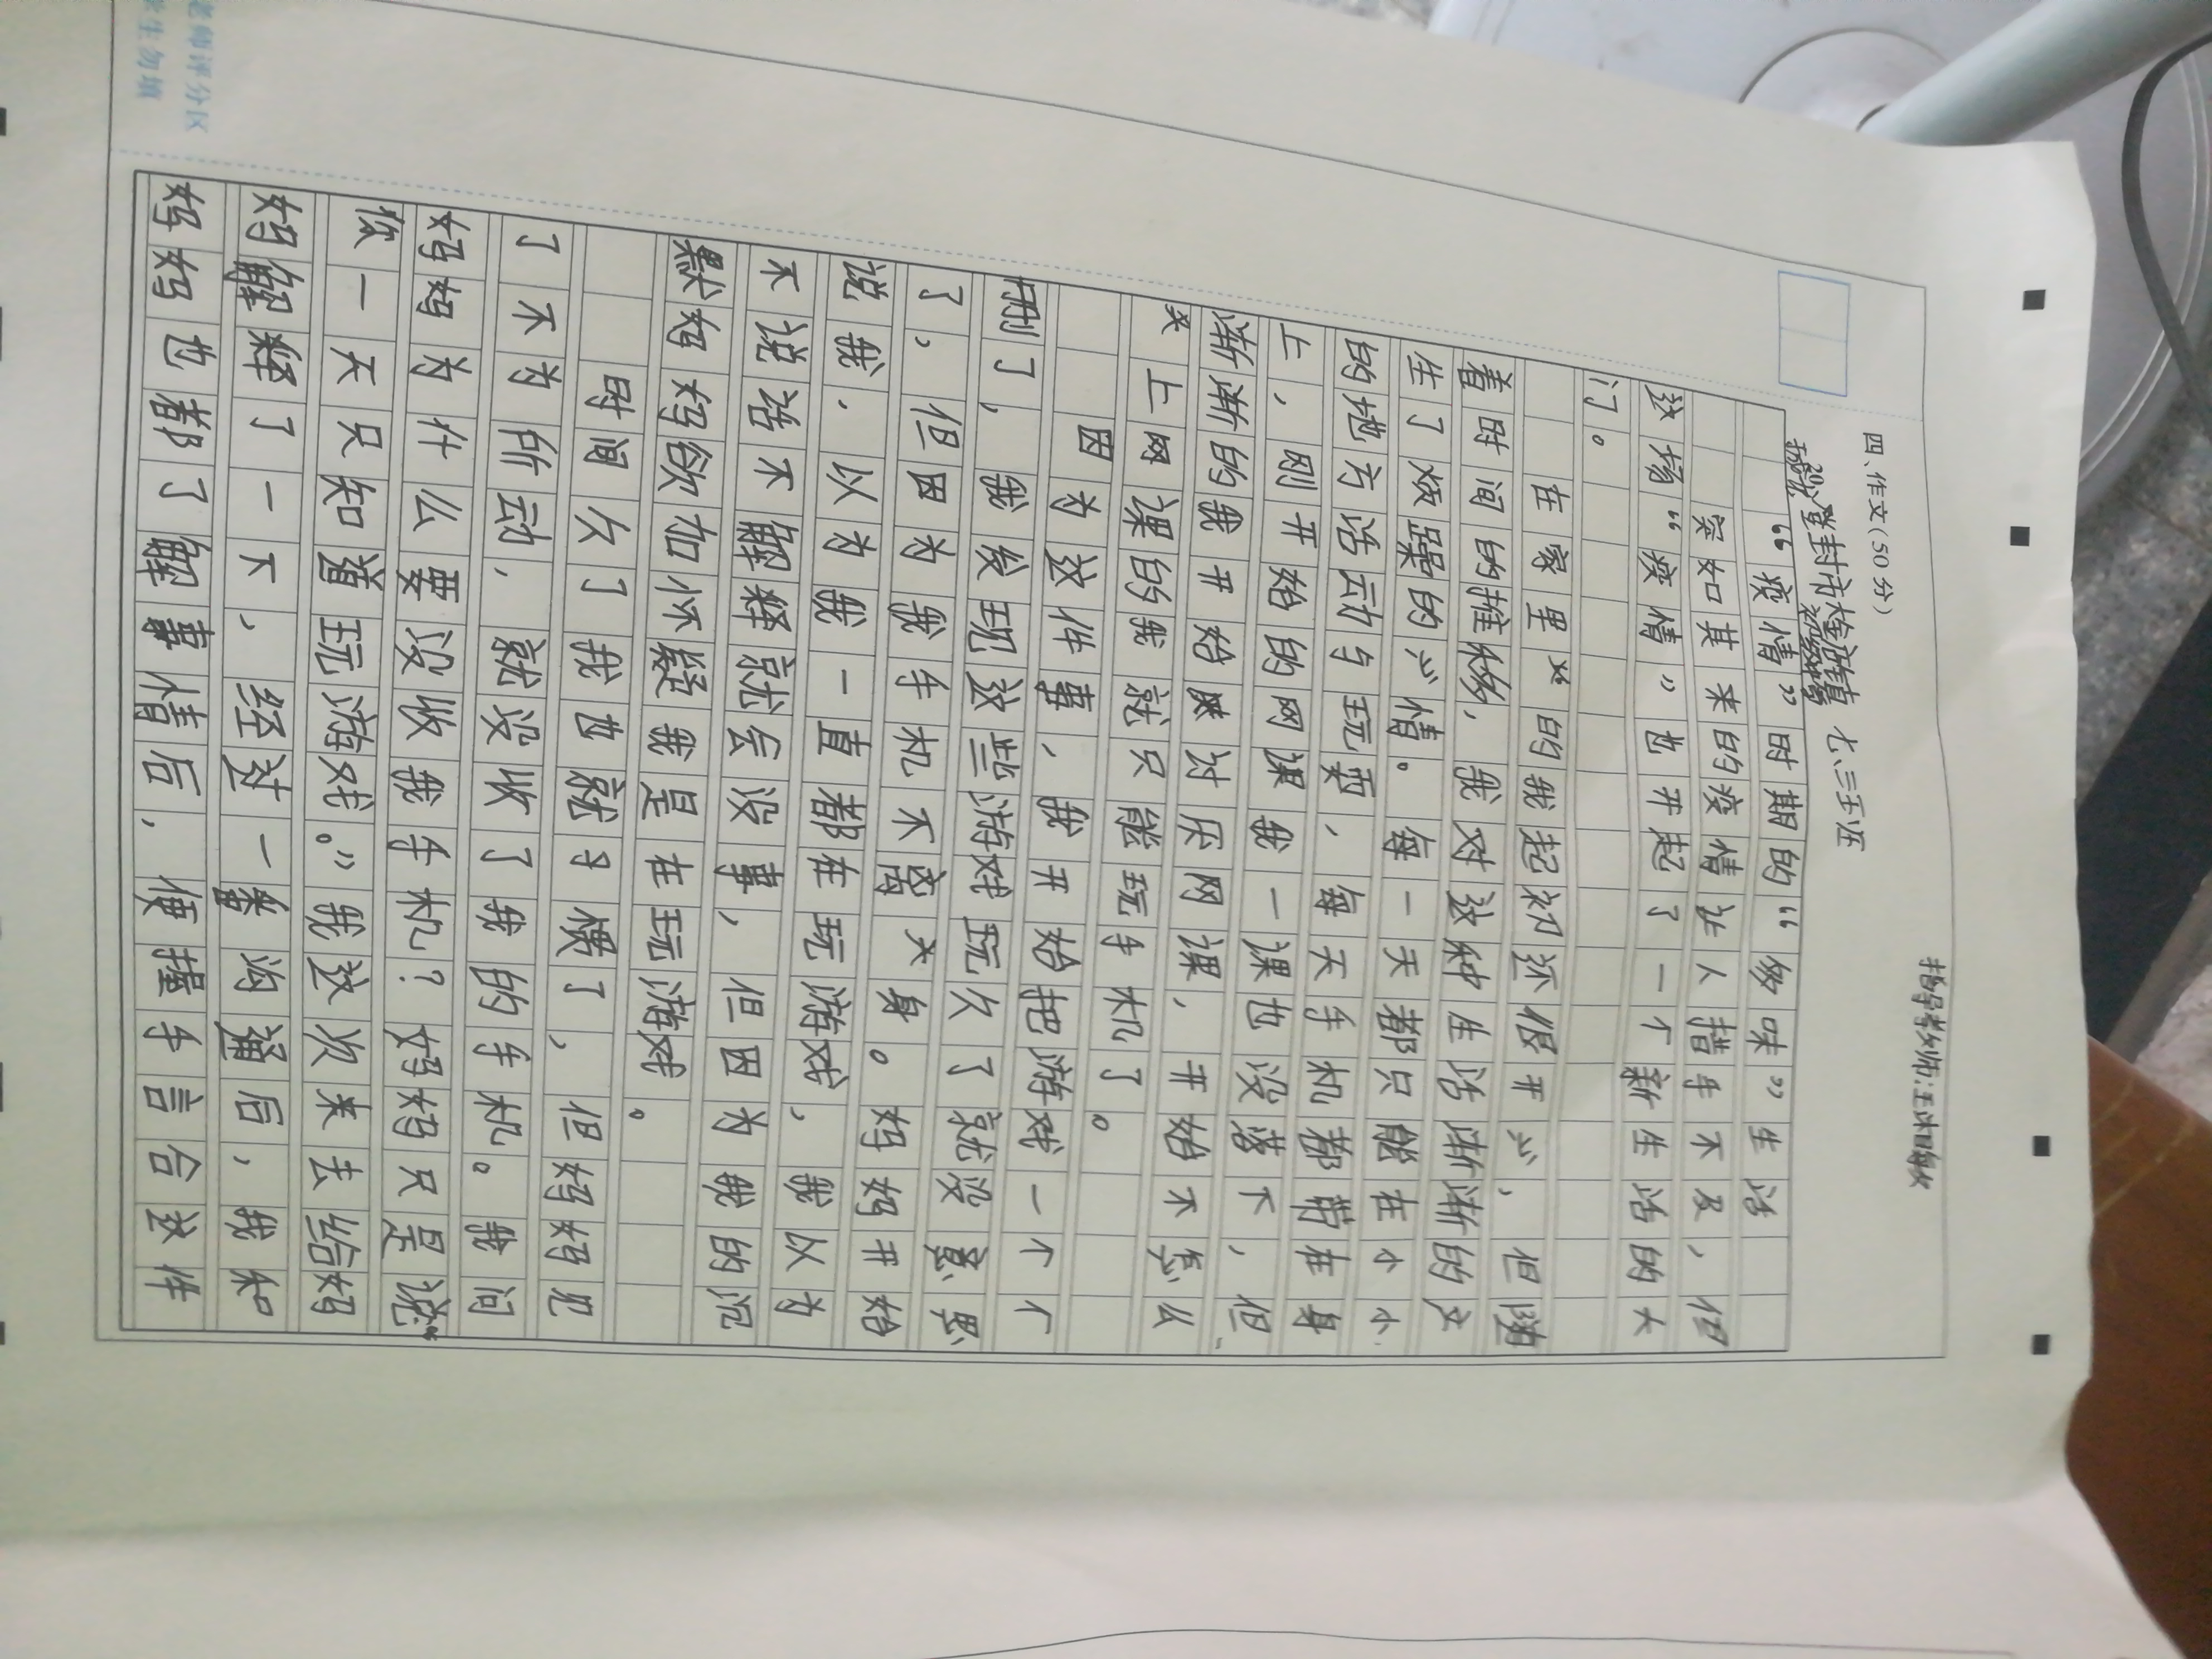 指导老师:王冰
四、作文(50分)
登封市大金店镇 七、三 王
“疫情”时期的“多味”生活
突如其来的疫情让人措手不及,但
这场“疫情”也开起了一个新生活的大
门。
在家里的我起初还很开心,但随
着时间的推移,我对这种生活渐渐的产
生了烦躁的心情。每一天都只能在小小
的地方活动与玩耍,每天手机都带在身
上,刚开始的网课我一课也没落下,但
渐渐的我开始讨厌网课,开始不怎么
上网课的我就只能玩手机了。
因为这件事,我开始把游戏一个个
删了,我发现这些游戏玩久了就没意思
了,但因为我手机不离身。妈妈开始
说我,以为我一直都在玩游戏,我以为
不说话不解释就会没事,但因为我的沉
默妈妈欲加怀疑我是在玩游戏。
时间久了我也就习惯了,但妈妈见
了不为所动,就没收了我的手机。我问
妈妈为什么要没收我手机?妈妈只是说:“
你一天只知道玩游戏。”我这次来去给妈
妈解释了一下,经过一番沟通后,我和
妈妈也都了解事情后,便握手言合这件
老师评分区
学生勿填